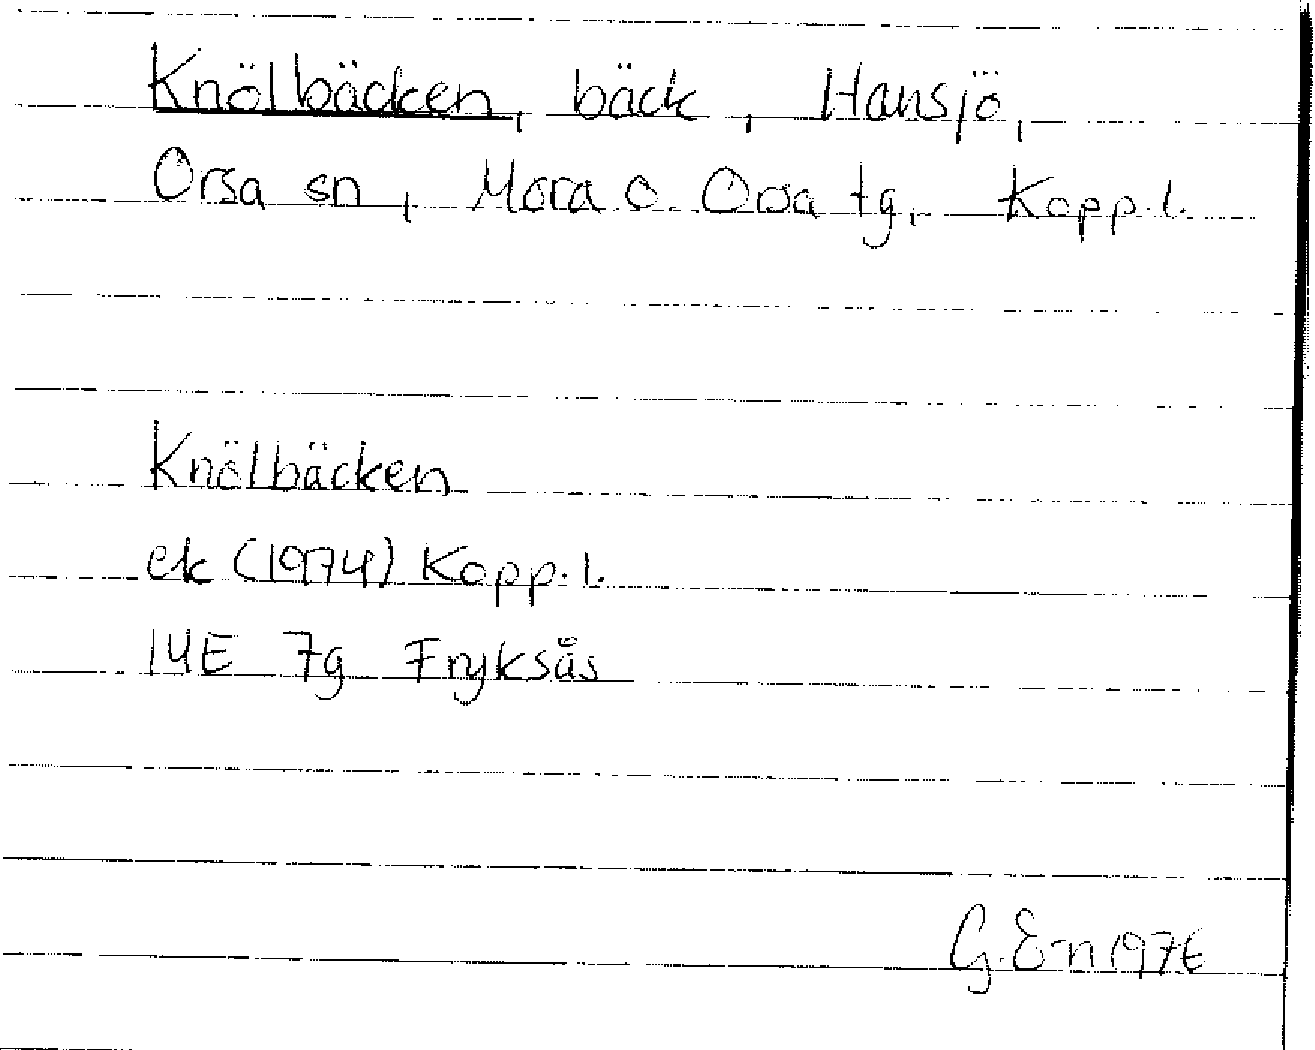 Knölbäcken, bäck, Hansjö,
Orsa sn, Mora o. Orsa tg, Kopp. l.
Knölbäcken
ek (1974) Kopp. l.
14E 7g Fryksås
G. E-n 1976